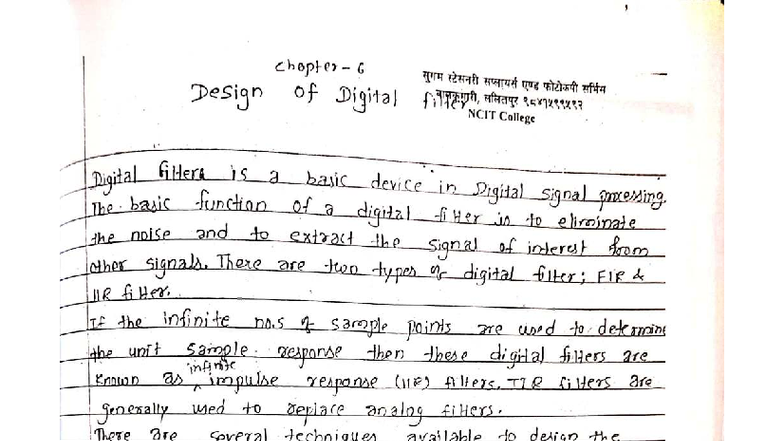 Chapter - 6
Design of Digital filter
सुगम स्टेसनरी सप्लायर्स एण्ड फोटोकपी सर्भिस
बालकुमारी, ललितपुर ९८४१५९९५९२
NCIT College
Digital filters is a basic device in Digital signal processing.
The basic function of a digital filter is to eliminate
the noise and to extract the signal of interest from
other signals. There are two types of digital filter; FIR &
IIR filter.
If the infinite no.s of sample points are used to determine
the unit sample response then these digital filters are
known as infinite impulse response (IIR) filters. IIR filters are
generally used to replace analog filters.
There are several techniques available to design the